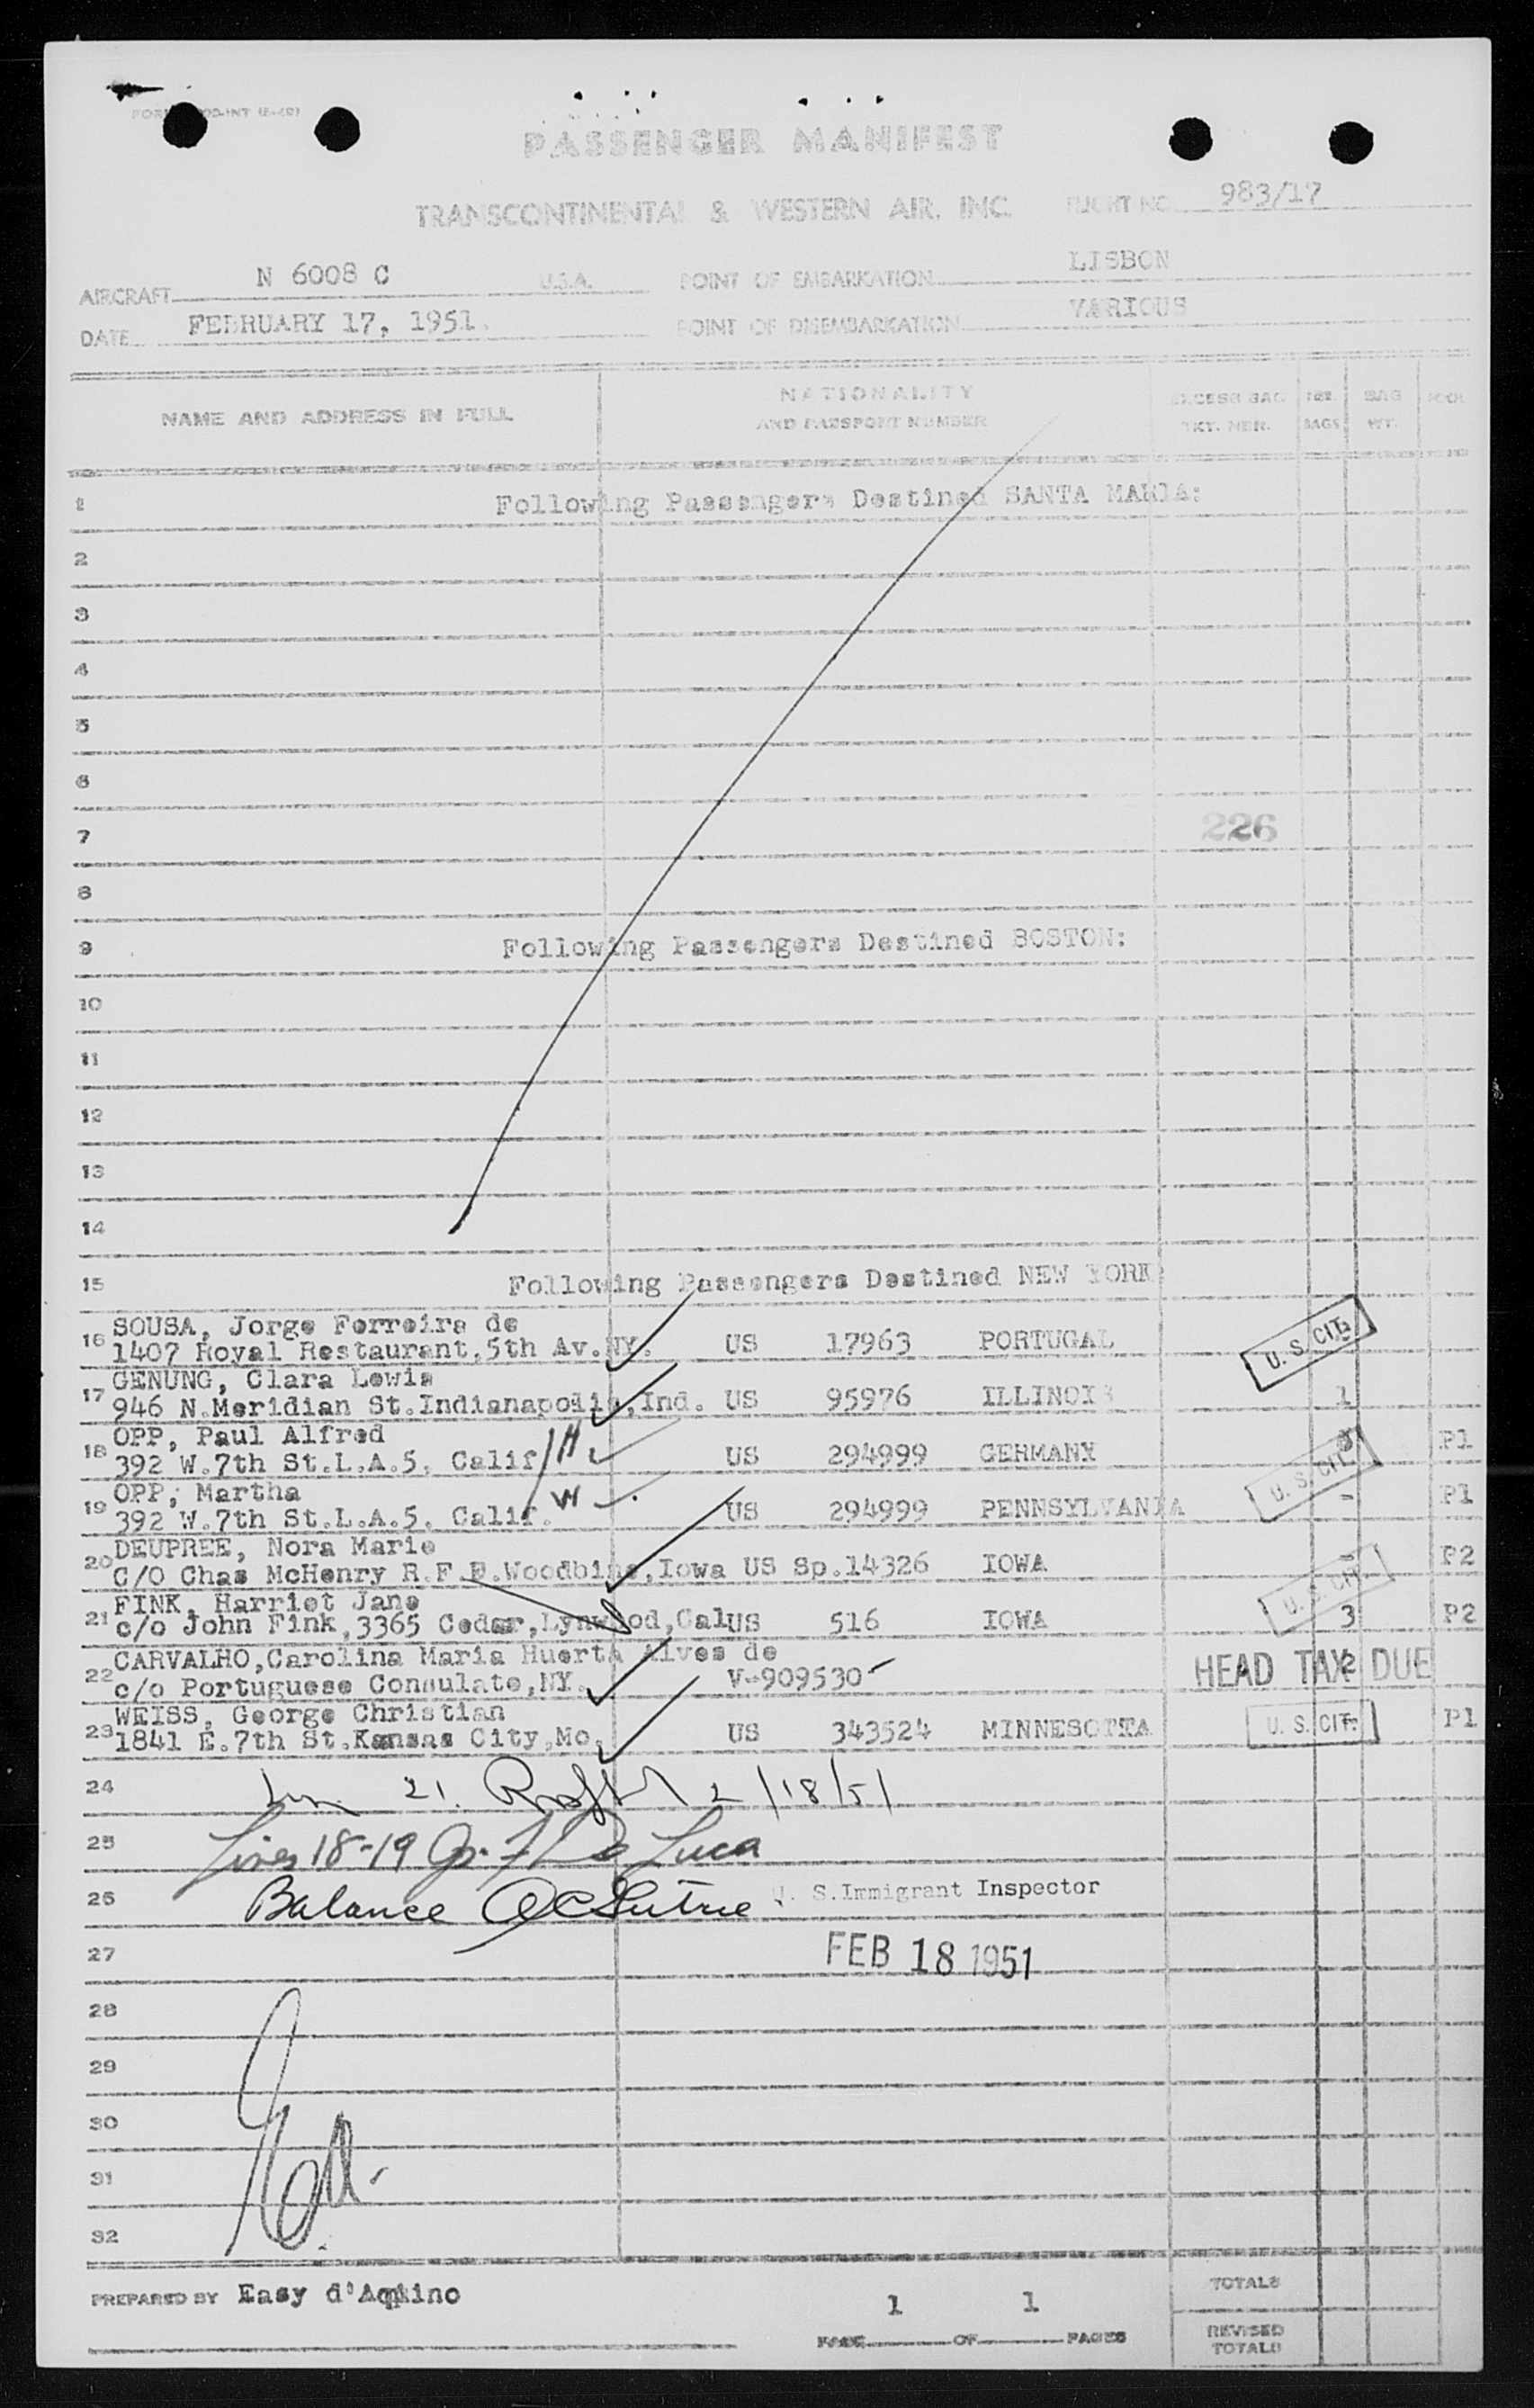 PASSENGER MANIFEST
TRANSCONTINENTAL & WESTERN AIR, INC. FLIGHT NO. 983/17
AIRCRAFT N 6008 C U.S.A. POINT OF EMBARKATION LISBON
DATE FEBRUARY 17, 1951. POINT OF DISEMBARKATION VARIOUS
NAME AND ADDRESS IN FULL
NATIONALITY
AND PASSPORT NUMBER
EXCESS BAG
TKT. NBR.
BAGS
BAG
WT.
1 Following Passengers Destined SANTA MARIA:
2
3
4
5
6
7 226
8
9 Following Passengers Destined BOSTON:
10
11
12
13
14
15 Following Passengers Destined NEW YORK:
SOUSA, Jorge Ferreira de
16 1407 Royal Restaurant,5th Av.NY. US 17963 PORTUGAL U. S. CIT.
GENUNG, Clara Lewis
17 946 N.Meridian St.Indianapolis,Ind. US 95976 ILLINOIS 1
OPP, Paul Alfred H
18 392 W.7th St.L.A.5. Calif US 294999 GERMANY 3 P1
OPP, Martha W
19 392 W.7th St.L.A.5. Calif. US 294999 PENNSYLVANIA U. S. CIT. - P1
DEUPREE, Nora Marie
20 C/O Chas McHenry R.F.D.Woodbine,Iowa US Sp.14326 IOWA P2
FINK, Harriet Jane
21 c/o John Fink,3365 Cedar,Lynwood,Cal US 516 IOWA U. S. CIT. 3 P2
CARVALHO,Carolina Maria Huerta Alves de
22 c/o Portuguese Consulate,NY. V-909530 HEAD TAX DUE 2
WEISS, George Christian
23 1841 E.7th St.Kansas City,Mo. US 343524 MINNESOTTA U. S. CIT. P1
24 21. 2/18/51
25 Lines 18-19 De Luca
26 Balance U. S.Immigrant Inspector
27 FEB 18 1951
28
29
30
31
32
PREPARED BY Easy d'Aquino
PAGE 1 OF 1 PAGES
TOTALS
REVISED
TOTALS